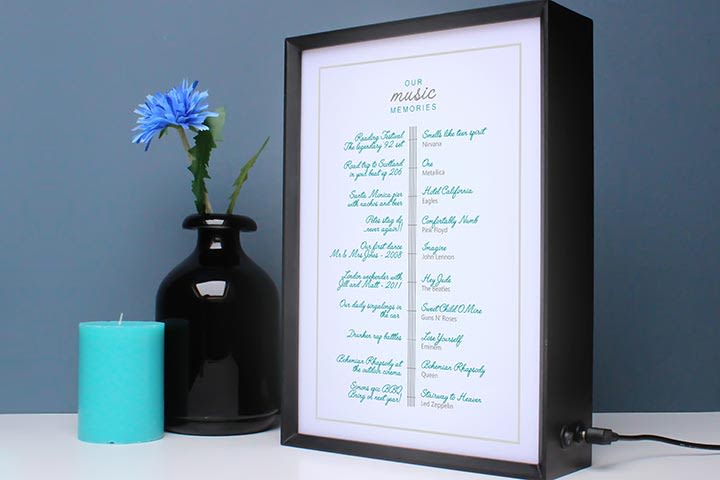 OUR
music
MEMORIES
Reading Festival
The legendary 92 set
Smells like teen spirit
Nirvana
Road trip to Scotland
in your beat up 206
One
Metallica
Santa Monica pier
with nachos and beer
Hotel California
Eagles
Petes stag do,
never again!!
Comfortably Numb
Pink Floyd
Our first dance
Mr & Mrs Jones - 2008
Imagine
John Lennon
London weekender with
Jill and Matt - 2011
Hey Jude
The Beatles
Our daily singalongs in
the car
Sweet Child O Mine
Guns N' Roses
Drunken rap battles
Lose Yourself
Eminem
Bohemian Rhapsody at
the outdoor cinema
Bohemian Rhapsody
Queen
Simons epic BBQ,
Bring on next year!
Stairway to Heaven
Led Zeppelin